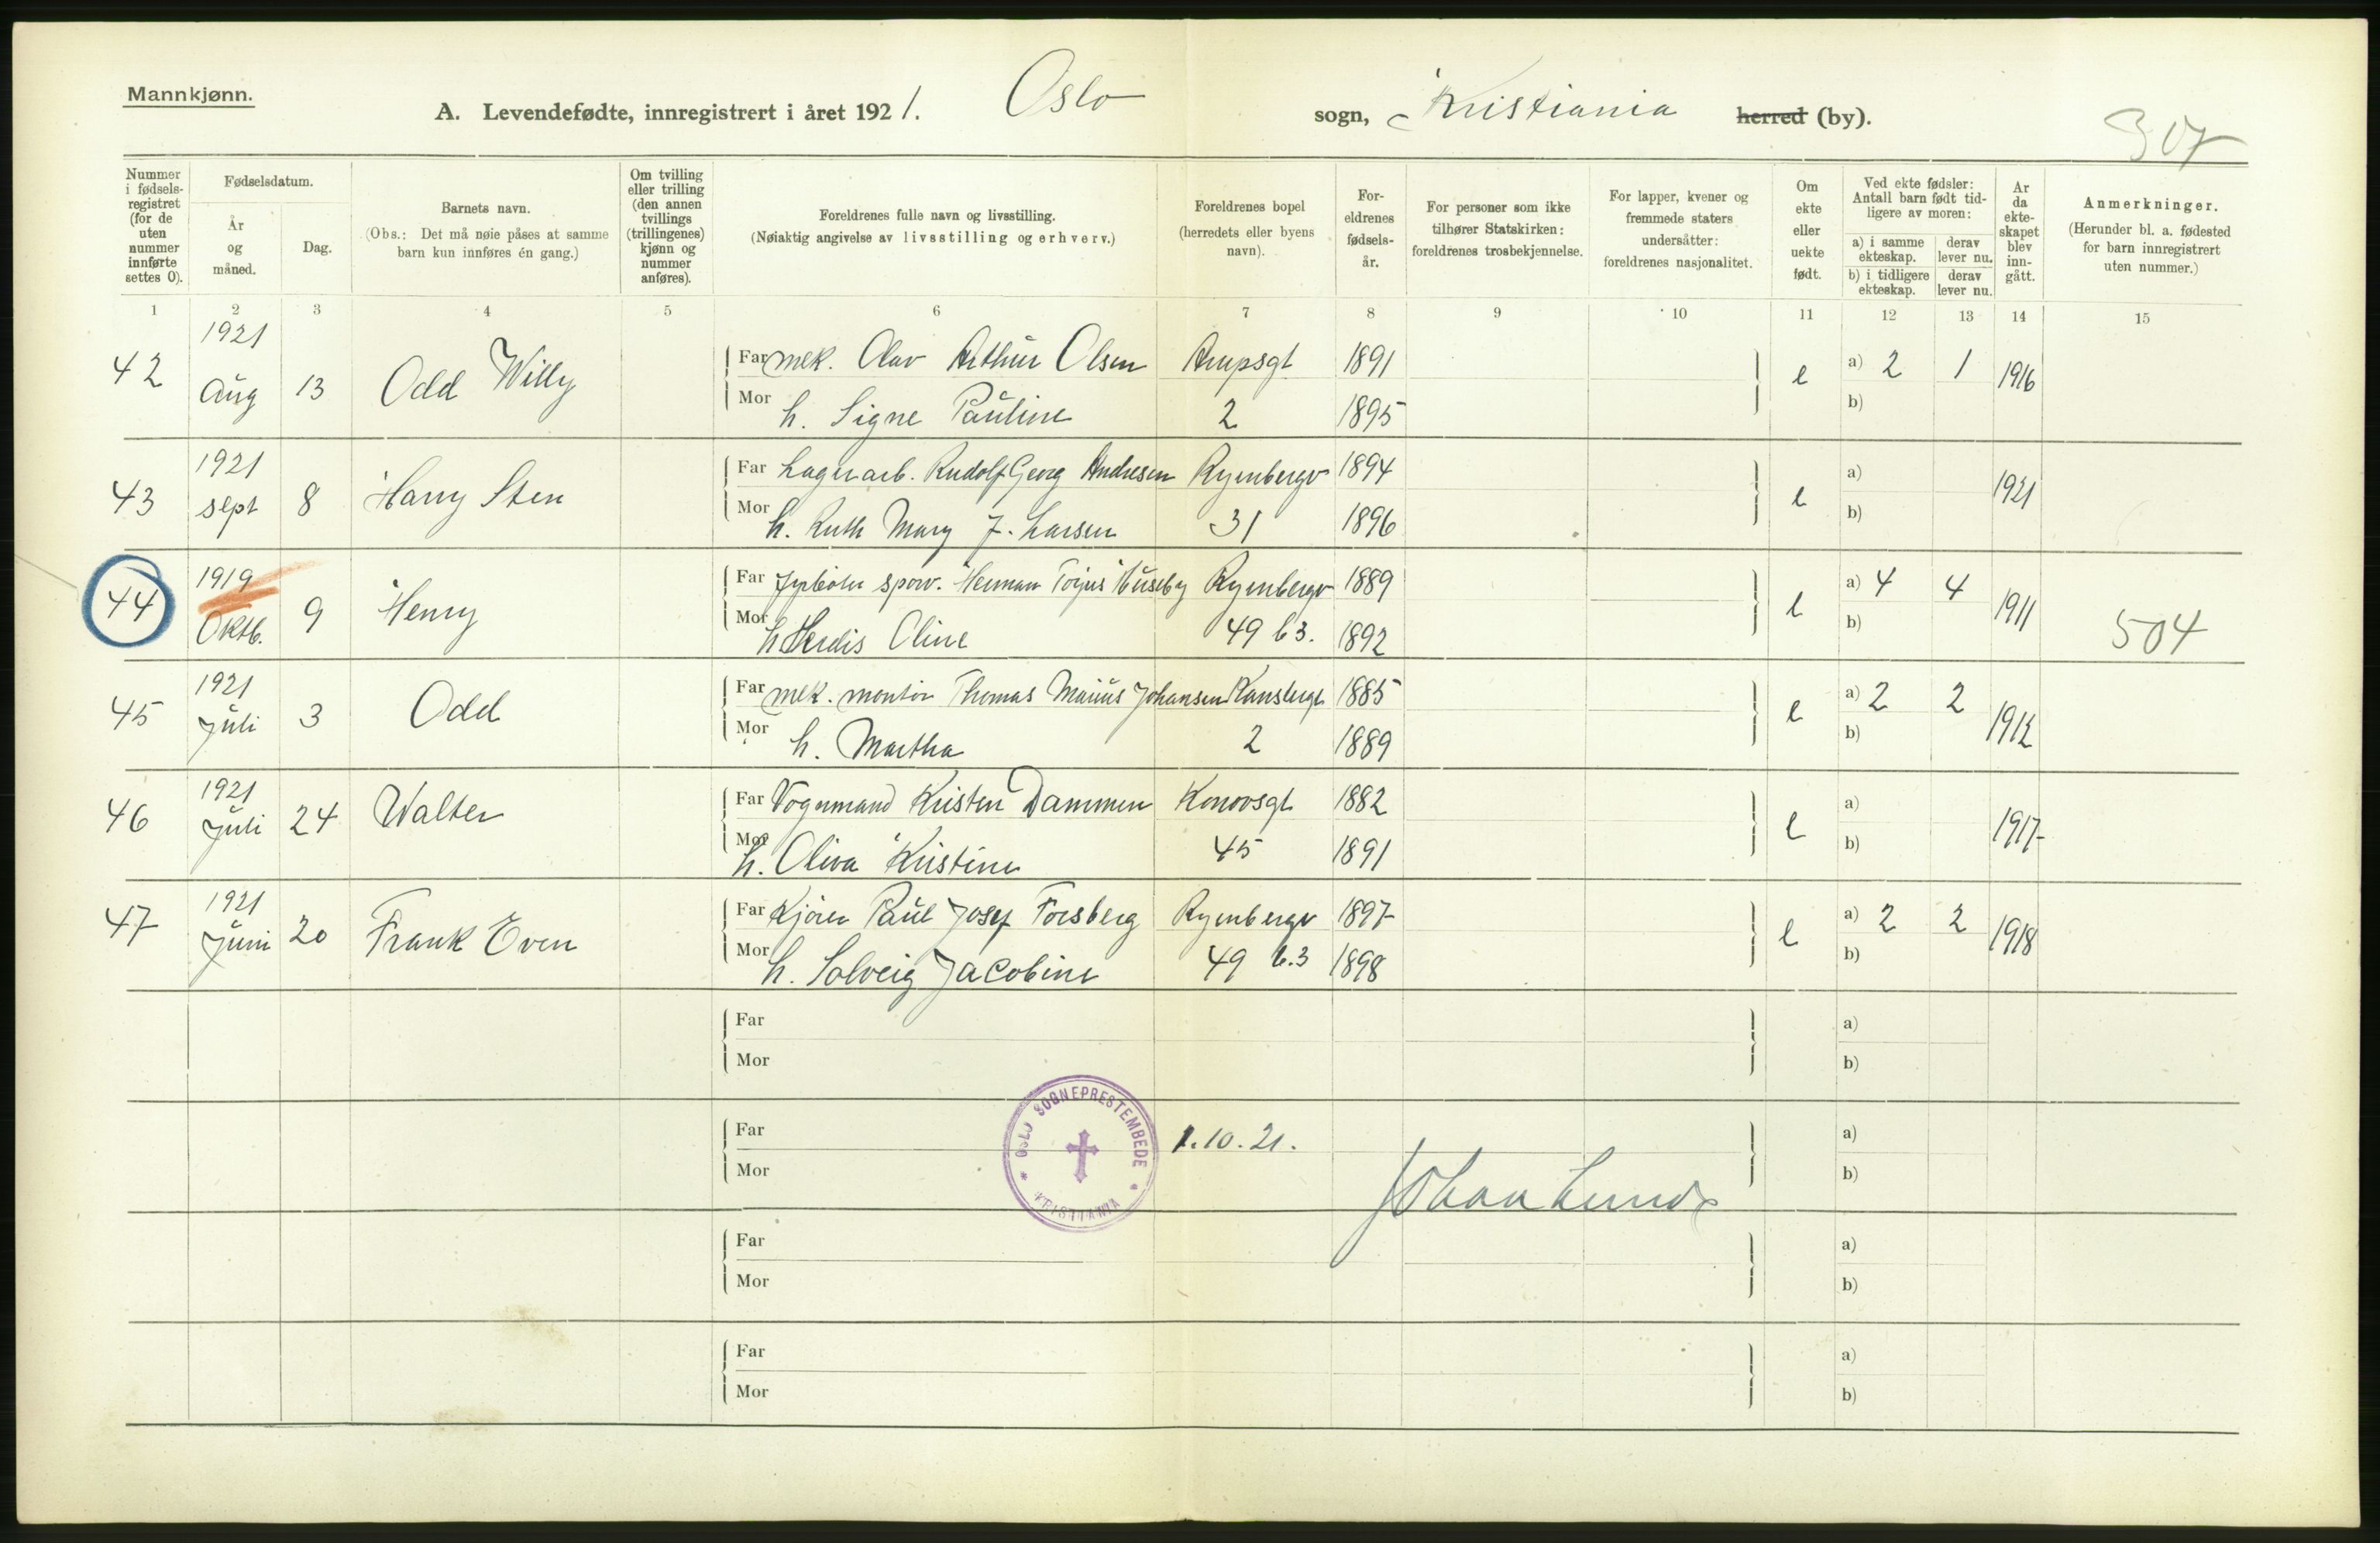 Mannkjønn.
A. Levendefødte, innregistrert i året 1921. Oslo sogn, Kristiania herred (by).
307
Nummer i fødsels-registret (for de uten nummer innførte settes 0).
Fødselsdatum.
År og måned.
Dag.
Barnets navn.
(Obs.: Det må nøie påses at samme barn kun innføres én gang.)
Om tvilling eller trilling (den annen tvillings (trillingenes) kjønn og nummer anføres).
Foreldrenes fulle navn og livsstilling.
(Nøiaktig angivelse av livsstilling og erhverv.)
Foreldrenes bopel (herredets eller byens navn).
For-eldrenes fødsels-år.
For personer som ikke tilhører Statskirken: foreldrenes trosbekjennelse.
For lapper, kvener og fremmede staters undersåtter: foreldrenes nasjonalitet.
Om ekte eller uekte født.
Ved ekte fødsler: Antall barn født tid-ligere av moren:
a) i samme ekteskap.
derav lever nu.
b) i tidligere ekteskap.
derav lever nu.
Ar da ekte-skapet blev inn-gått.
Anmerkninger.
(Herunder bl. a. fødested for barn innregistrert uten nummer.)
1 2 3 4 5 6 7 8 9 10 11 12 13 14 15
1921
42 Aug 13 Odd Willy Far mek. Olav Arthur Olsen Arupsgt 1891 e a) 2 1 1916
Mor h. Signe Pauline 2 1895 b)
1921
43 sept 8 Harry Sten Far Lagerarb. Rudolf Georg Andresen Ryenbergv 1894 e a) 1921
Mor h. Ruth Mary J. Larsen 31 1896 b)
1919
44 Oktb. 9 Henry Far sporv. Herman Torjus Huseby Ryenbergv 1889 e a) 4 4 1911 504
Mor h Herdis Oline 49 b3. 1892 b)
1921
45 Juli 3 Odd Far mek. montør Thomas Marius Johansen 1885 e a) 2 2 1912
Mor h. Martha 2 1889 b)
1921
46 Juli 24 Walter Far Vognmand Kristen Dammen Konowsgt 1882 e a) 1917
Mor h. Oliva Kristine 45 1891 b)
1921
47 Juni 20 Frank Even Far Kjører Paul Josef Forsberg Ryenbergv 1897 e a) 2 2 1918
Mor h. Solveig Jacobine 49 b.3 1898 b)
Far a)
Mor b)
Far 1.10.21. a)
Mor Johan Lunde b)
OSLO SOGNEPRESTEMBEDE * KRISTIANIA *
Far a)
Mor b)
Far a)
Mor b)